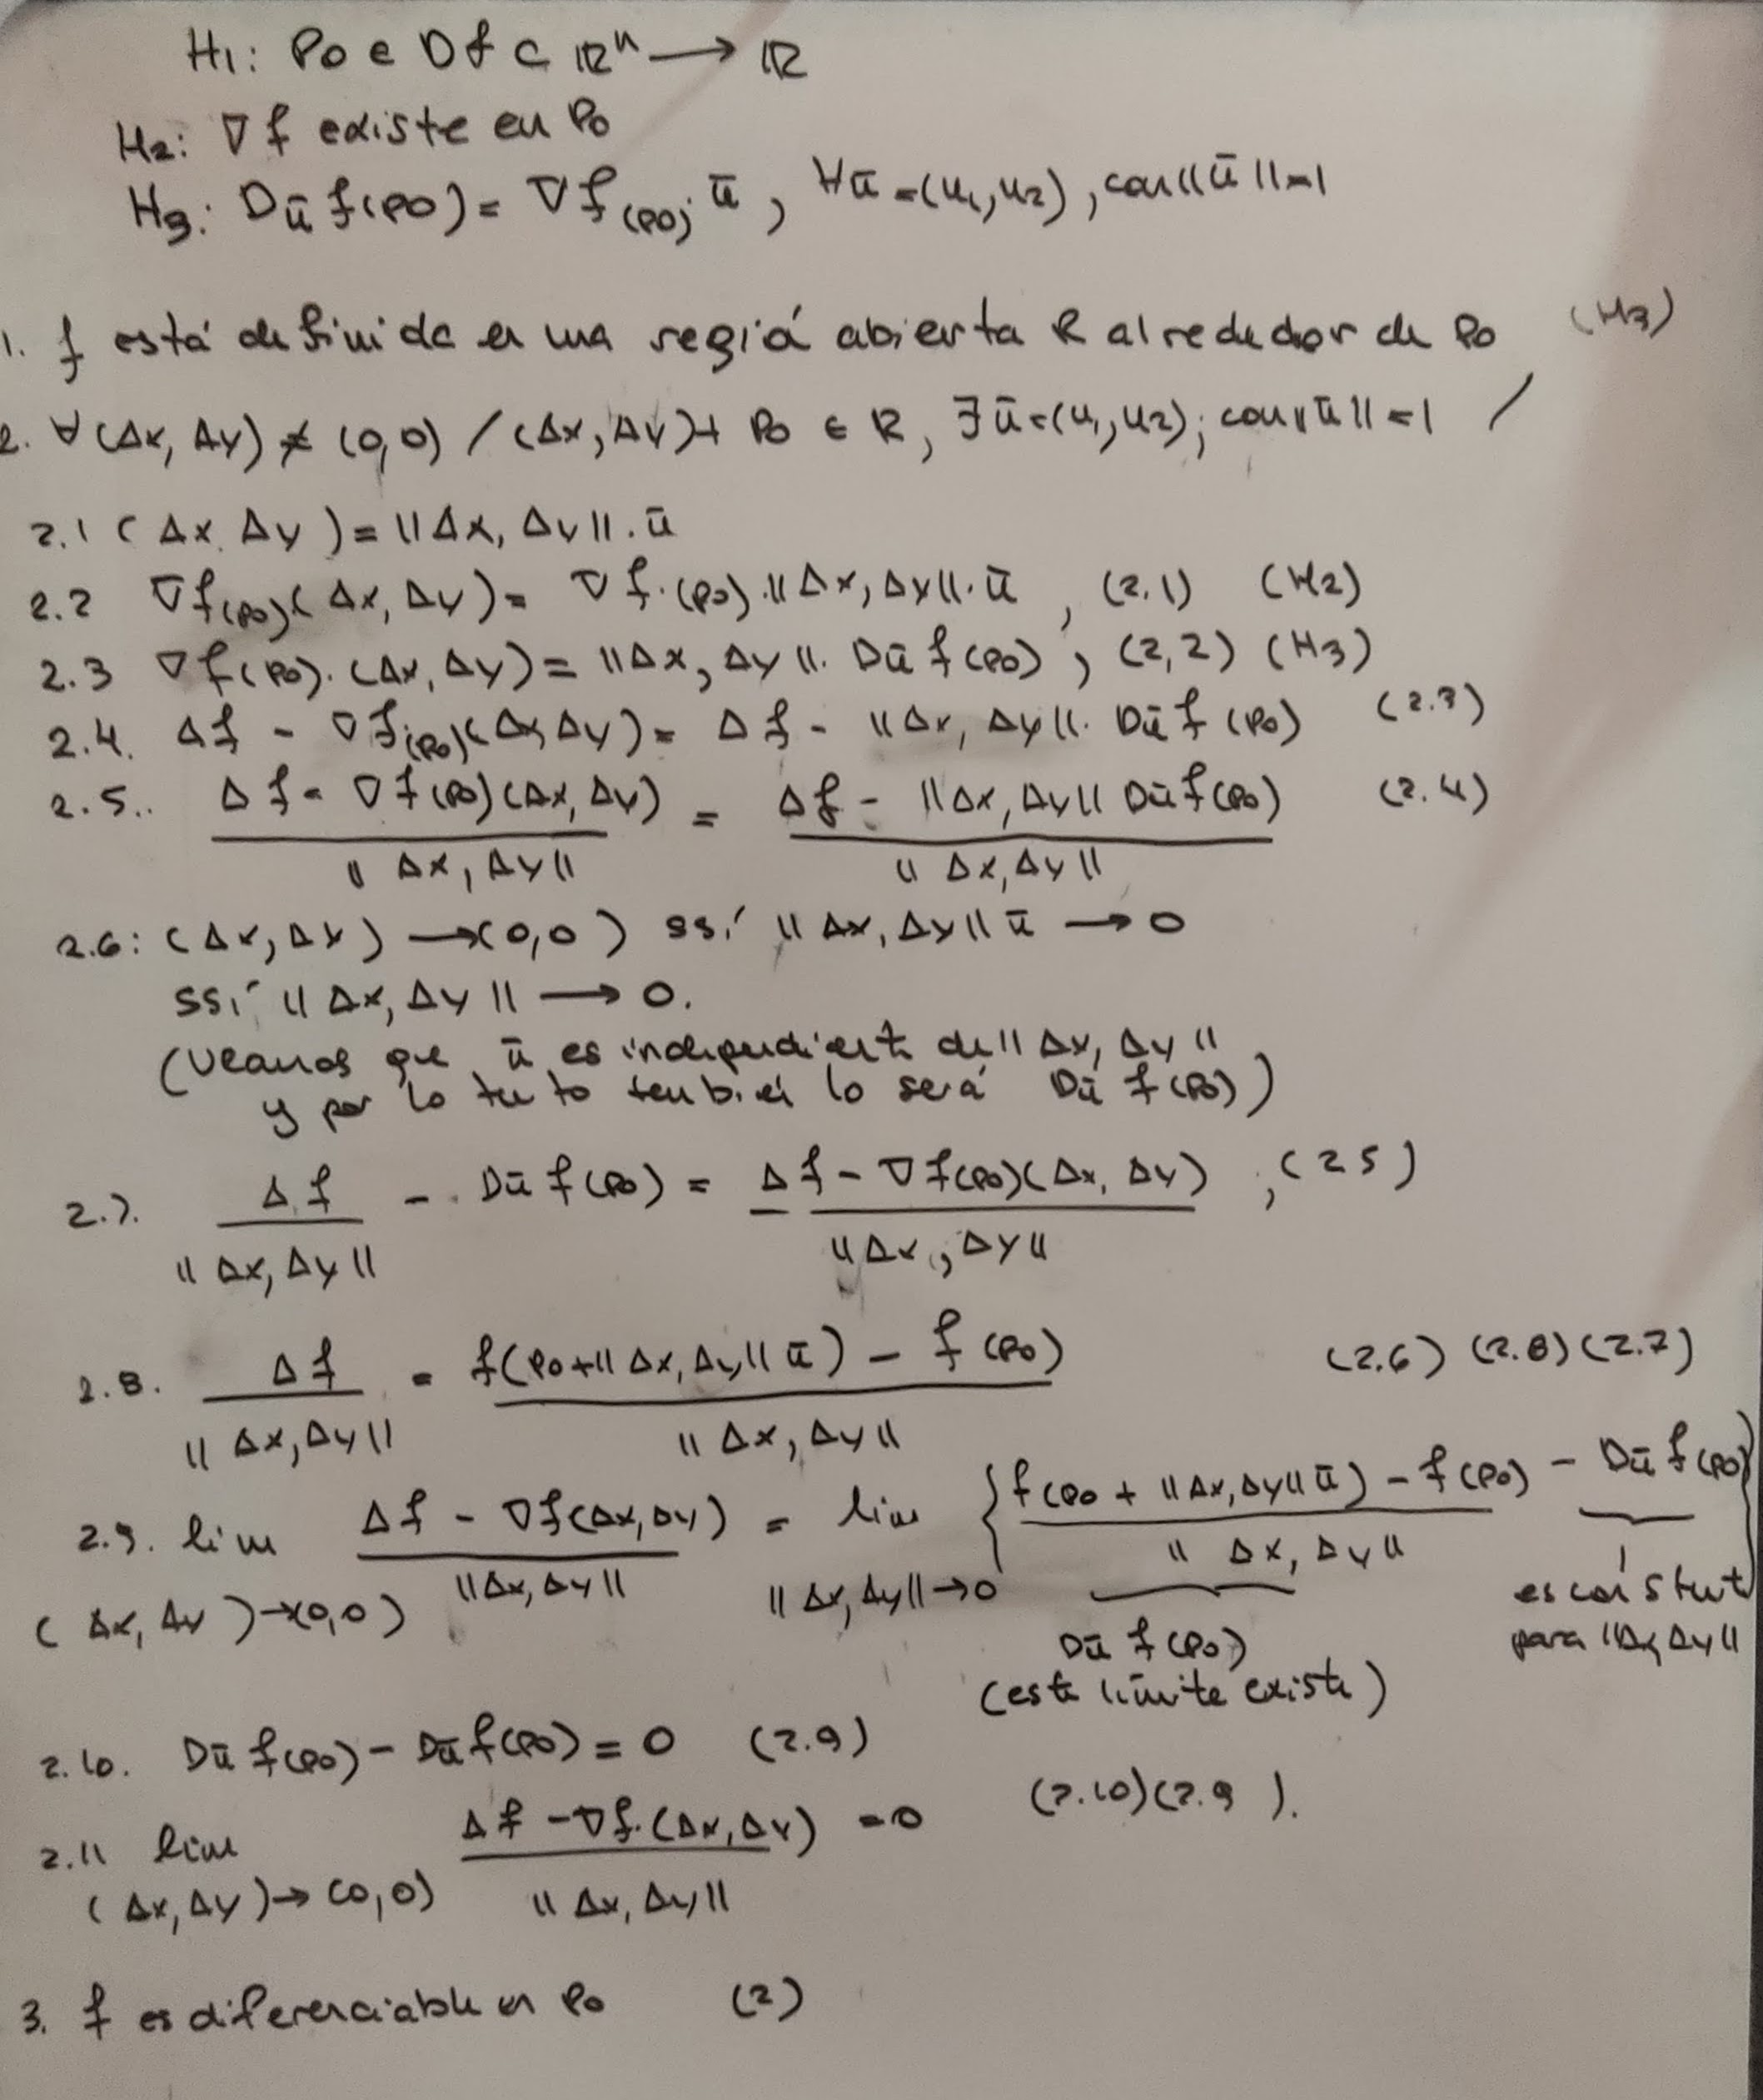 H1: Po e Df ⊂ ℝⁿ → ℝ
H2: ∇f existe en Po
H3: Dū f(po) = ∇f(po)· ū , ∀ū = (u1, u2), con ||ū|| = 1
1. f está definida en una regió abierta R alrededor de Po (H3)
2. ∀(Δx, Δy) ≠ (0,0) / (Δx, Δy) + Po ∈ R, ∃ū = (u1, u2); con ||ū|| = 1 /
2.1 (Δx, Δy) = ||Δx, Δy||. ū
2.2 ∇f(po)(Δx, Δy) = ∇f.(po).||Δx, Δy||.ū , (2.1) (H2)
2.3 ∇f(po).(Δx, Δy) = ||Δx, Δy||. Dū f(po) , (2,2) (H3)
2.4. Δf - ∇f(po)(Δx, Δy) = Δf - ||Δx, Δy||. Dū f(po) (2.3)
2.5.. Δf - ∇f(po)(Δx, Δy) / ||Δx, Δy|| = Δf - ||Δx, Δy|| Dū f(po) / ||Δx, Δy|| (2.4)
2.6: (Δx, Δy) → (0,0) ssí ||Δx, Δy|| ū → 0
ssí ||Δx, Δy|| → 0.
(Veamos que ū es independiente de ||Δx, Δy||
y por lo tanto también lo será Dū f(po))
2.7. Δf / ||Δx, Δy|| - Dū f(po) = Δf - ∇f(po)(Δx, Δy) / ||Δx, Δy|| ; (2 5)
2.8. Δf / ||Δx, Δy|| = f(po + ||Δx, Δy|| ū) - f(po) / ||Δx, Δy|| (2.6) (2.8) (2.7)
2.9. lim (Δx, Δy) → (0,0) Δf - ∇f(Δx, Δy) / ||Δx, Δy|| = lim ||Δx, Δy|| → 0 { f(po + ||Δx, Δy|| ū) - f(po) / ||Δx, Δy|| - Dū f(po) }
Dū f(po)
(este límite existe)
es constante
para ||Δx, Δy||
2.10. Dū f(po) - Dū f(po) = 0 (2.9)
2.11 lim (Δx, Δy) → (0,0) Δf - ∇f.(Δx, Δy) / ||Δx, Δy|| = 0 (2.10)(2.9).
3. f es diferenciable en Po (2)